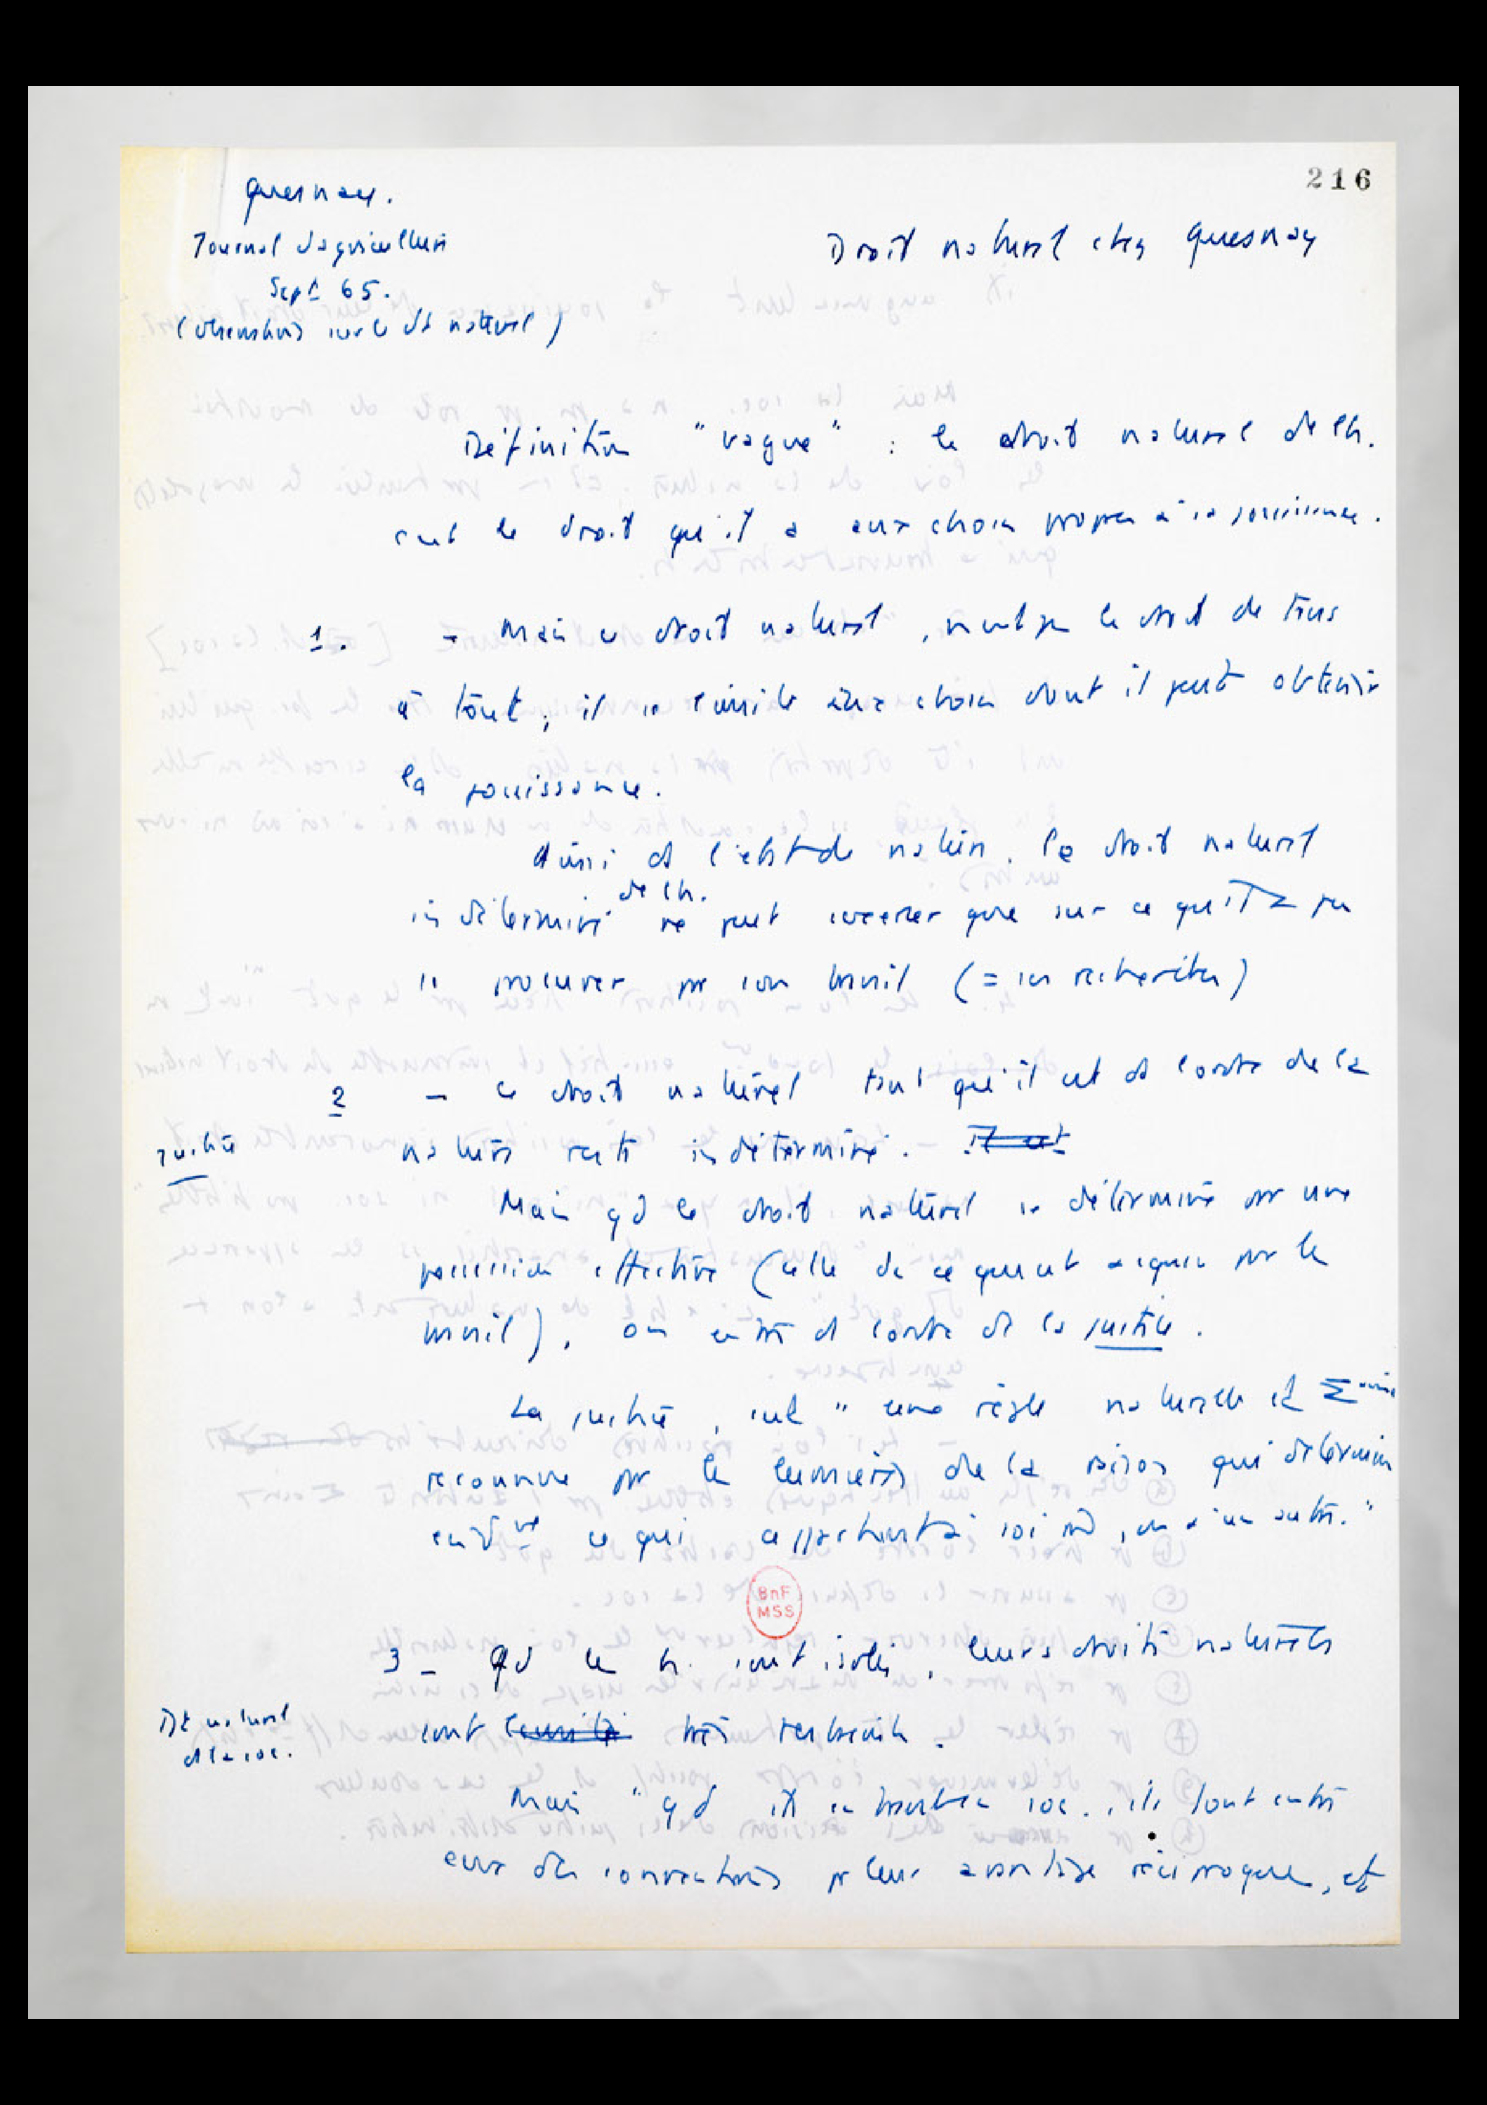 216
Quesnay.
Journal d'agriculture
Sept 65.
(observations sur le dt naturel)
Droit naturel chez Quesnay
Définition "vague" : le droit naturel de l'h.
c'est le droit qu'il a aux choses propres à sa jouissance.
1. - Mais ce droit naturel, n'est pas le droit de tous
à tout ; il se limite aux choses dont il peut obtenir
la jouissance.
Ainsi ds l'état de nature. le droit naturel
indéterminé de l'h. ne peut s'exercer que sur ce qu'il a pu
se procurer par son travail (= ses recherches)
2 - Le droit naturel tant qu'il est ds l'ordre de la
justice
nature reste indéterminé. - Il est
Mais qd le droit naturel se détermine par une
possession effective (celle de ce qui est acquis par le
travail), on entre ds l'ordre de la justice.
La justice, c'est "une règle naturelle et
reconnue par les lumières de la raison qui détermine
ce qui appartient à soi mê, ou à un autre."
BnF
MSS
3 - Qd les h. sont isolés, leurs droits naturels
Dt naturel
ds la soc.
sont limités très restreints.
Mais "qd ils entrent en soc., ils font entre
eux des conventions pr leur avantage réciproque, et